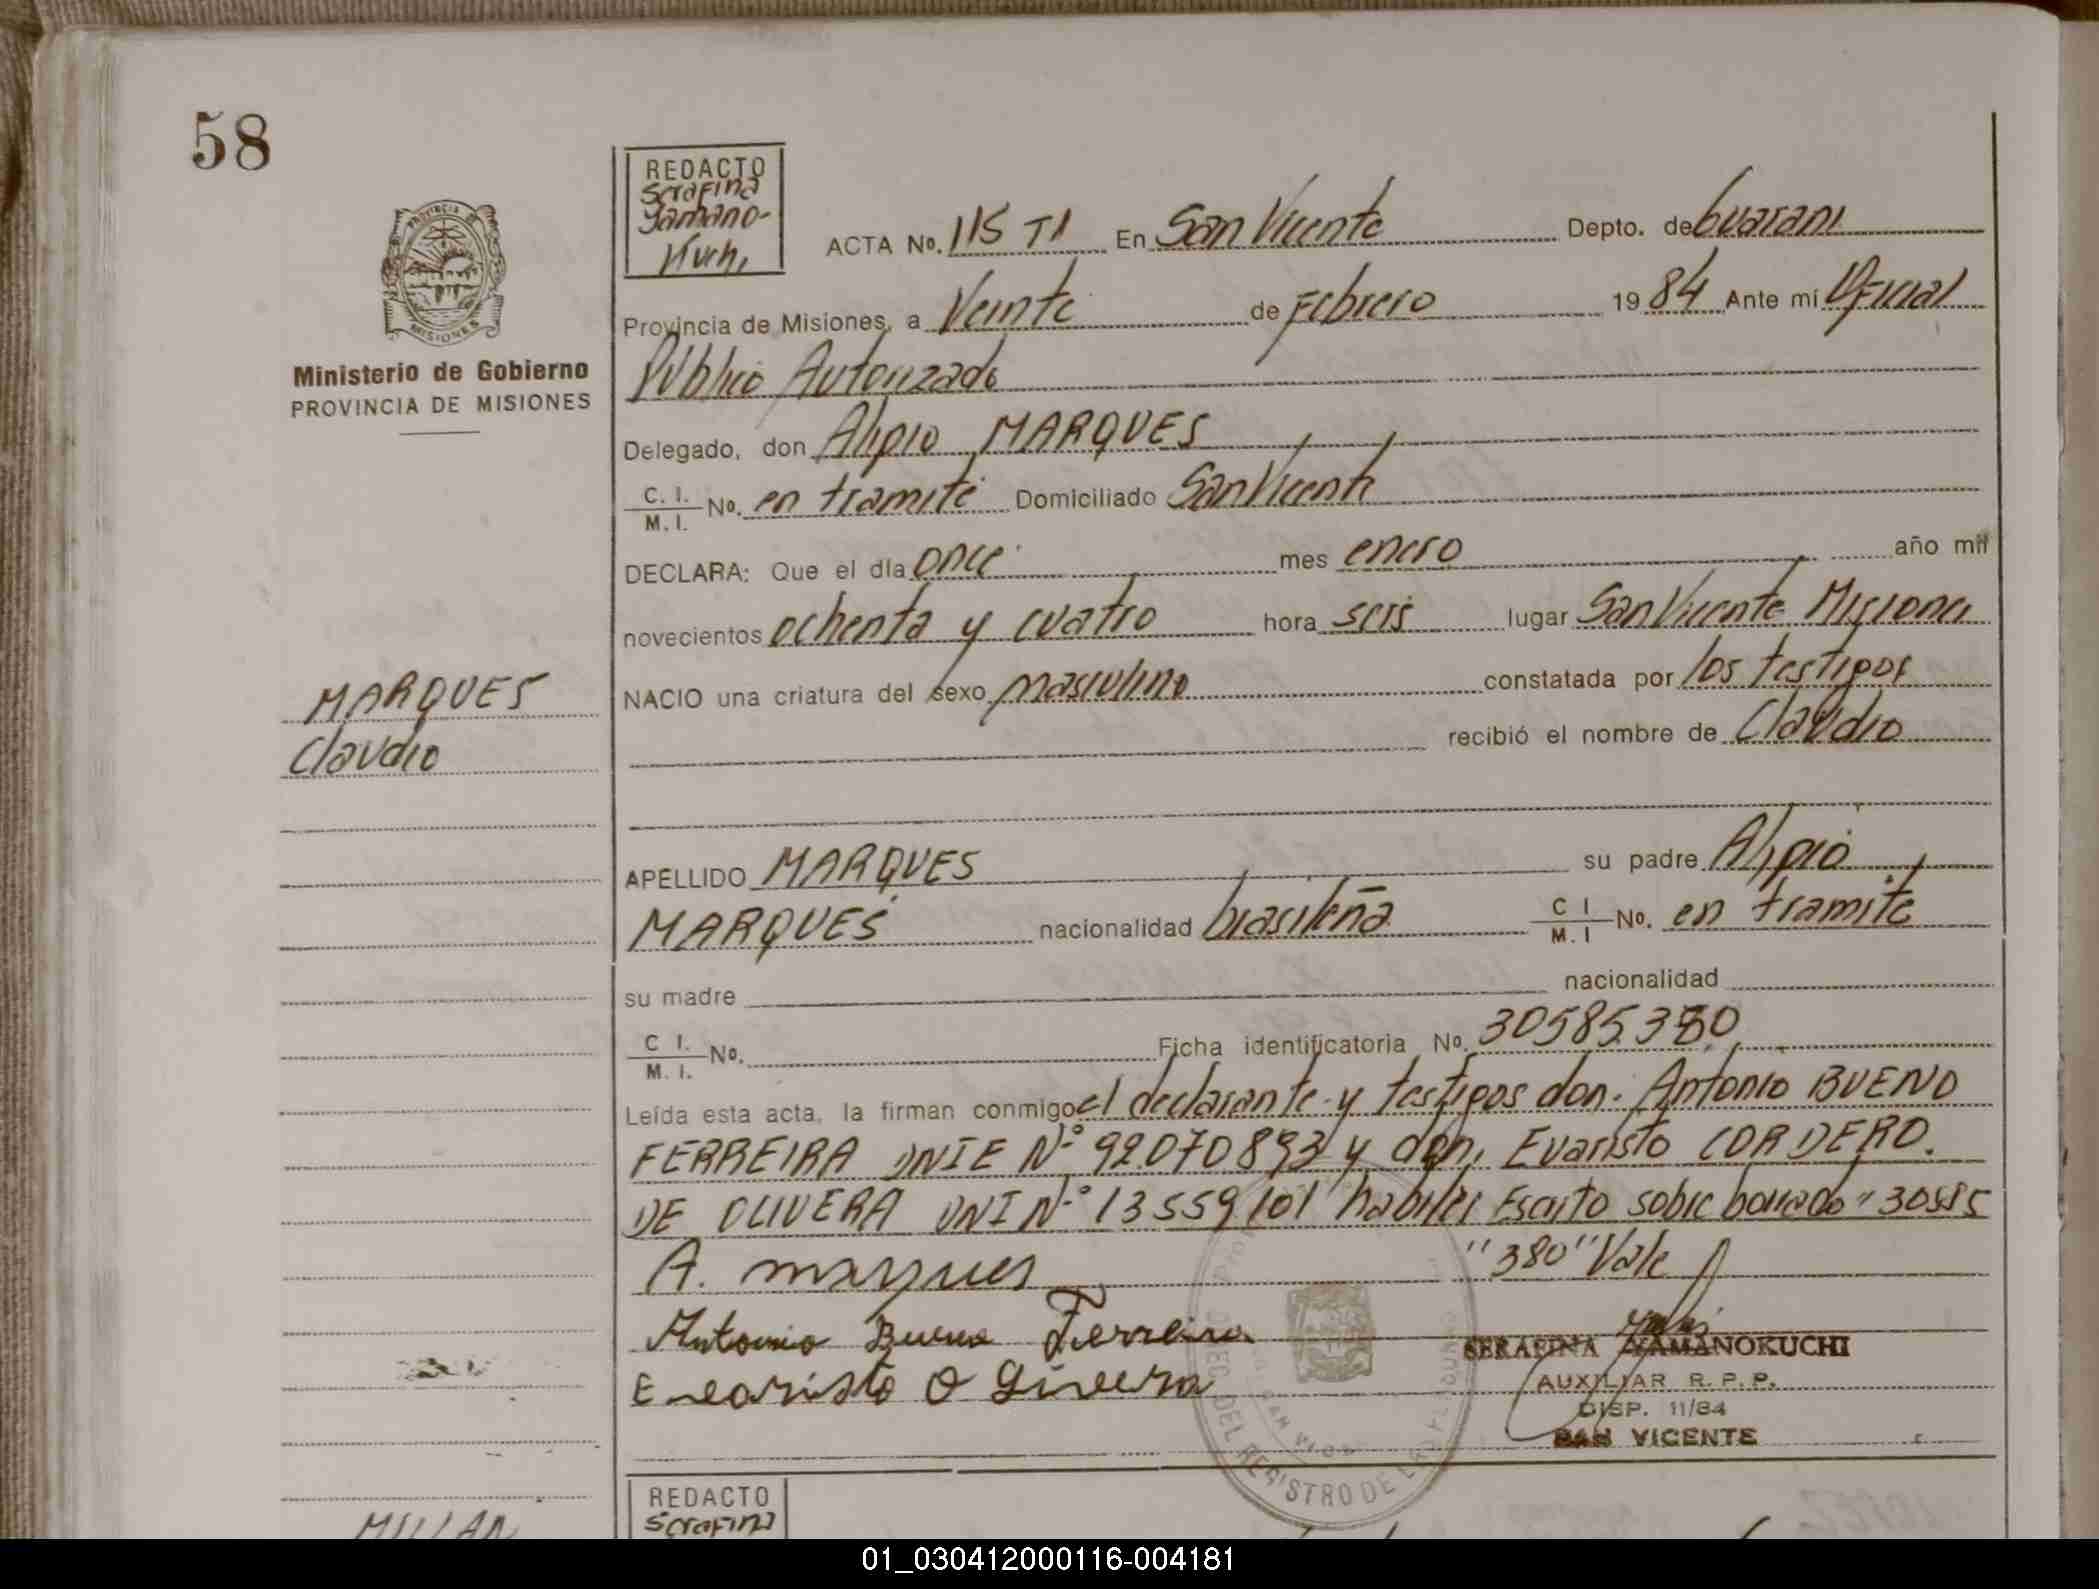 58
REDACTO
Serafina
Yamano-
Kuchi
PROVINCIA DE
MISIONES
Ministerio de Gobierno
PROVINCIA DE MISIONES
ACTA No. 115 T1 En San Vicente Depto. de Guarani
Provincia de Misiones, a Veinte de Febrero 1984 Ante mí Oficial
Público Autorizado
Delegado, don Alipio MARQUES
C. I. M. I. No. en tramite Domiciliado San Vicente
DECLARA: Que el día once mes enero año mil
novecientos ochenta y cuatro hora seis lugar San Vicente Misiones
NACIO una criatura del sexo masculino constatada por los testigos
recibió el nombre de Claudio
MARQUES
Claudio
APELLIDO MARQUES su padre Alipio
MARQUES nacionalidad brasileña C I M. I No. en tramite
su madre nacionalidad
C I. M. I. No. Ficha identificatoria No. 30585.380
Leída esta acta, la firman conmigo el declarante y testigos don. Antonio BUENO
FERREIRA DNIE Nº 92.070.893 y don, Evaristo CORDERO.
DE OLIVERA DNI Nº 13559101 habiles Escrito sobre borrado "30585
"380" Vale
A. marques
Antonio Bueno Ferreira
Evaristo O Livera
SERAFINA YAMANOKUCHI
AUXILIAR R. P. P.
DISP. 11/84
SAN VICENTE
DEL REGISTRO DE LAS
REDACTO
Serafina
01_030412000116-004181